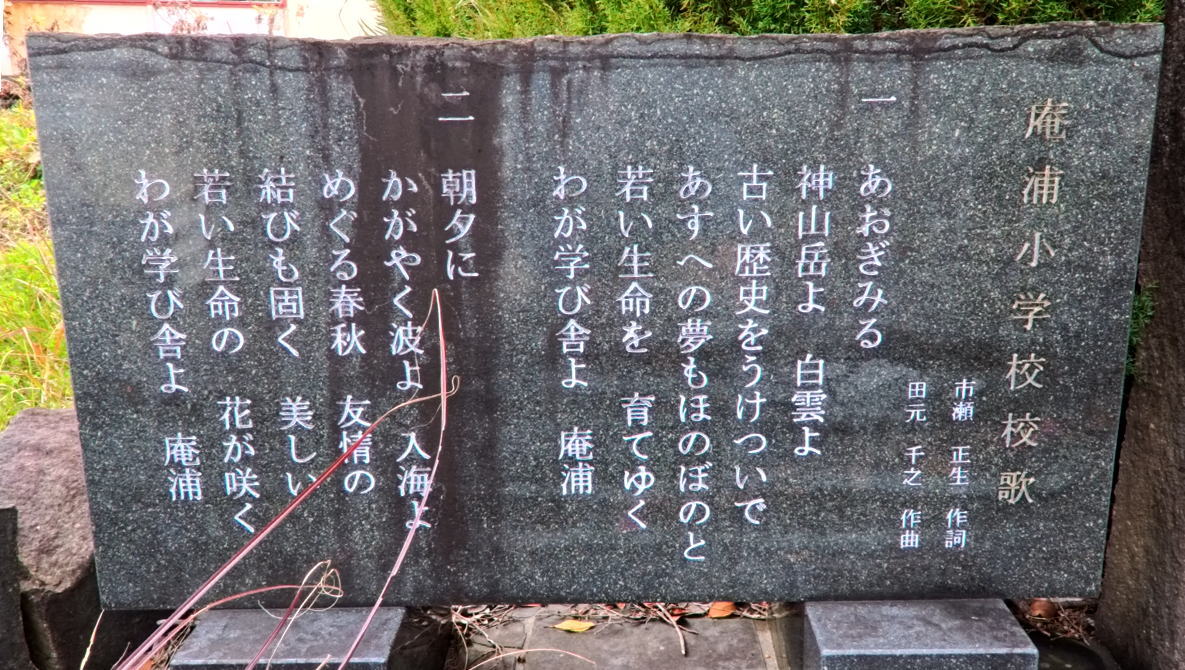 庵浦小学校校歌
市瀬 正生 作詞
田元 千之 作曲
一 あおぎみる
神山岳よ 白雲よ
古い歴史をうけついで
あすへの夢もほのぼのと
若い生命を 育てゆく
わが学び舎よ 庵浦
二 朝夕に
かがやく波よ 入海よ
めぐる春秋 友情の
結びも固く 美しい
若い生命の 花が咲く
わが学び舎よ 庵浦